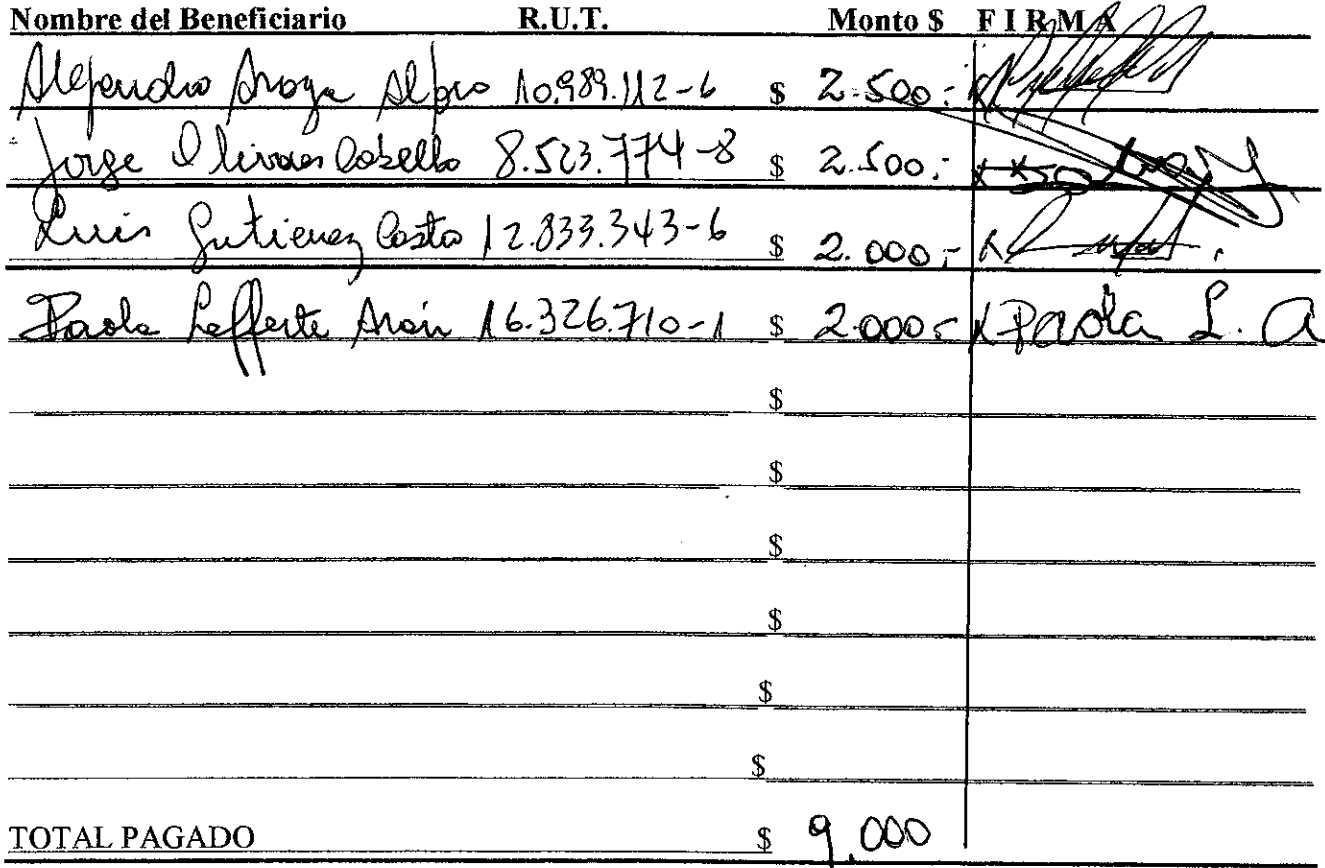 Nombre del Beneficiario R.U.T. Monto $ FIRMA
Alejandro Araya Alfaro 10.989.112-6 $ 2.500.-
Jorge Olivares 8.523.774-8 $ 2.500.-
Luis Gutierrez Costa 12.833.343-6 $ 2.000.-
Paola Lafferte 16.326.710-1 $ 2.000.- x Paola L. A
$
$
$
$
$
$
TOTAL PAGADO $ 9.000